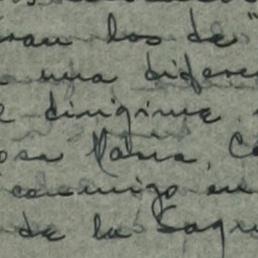 eran los de "
una difere
dirigirme
osa María, C
conmigo en
de la Sagr